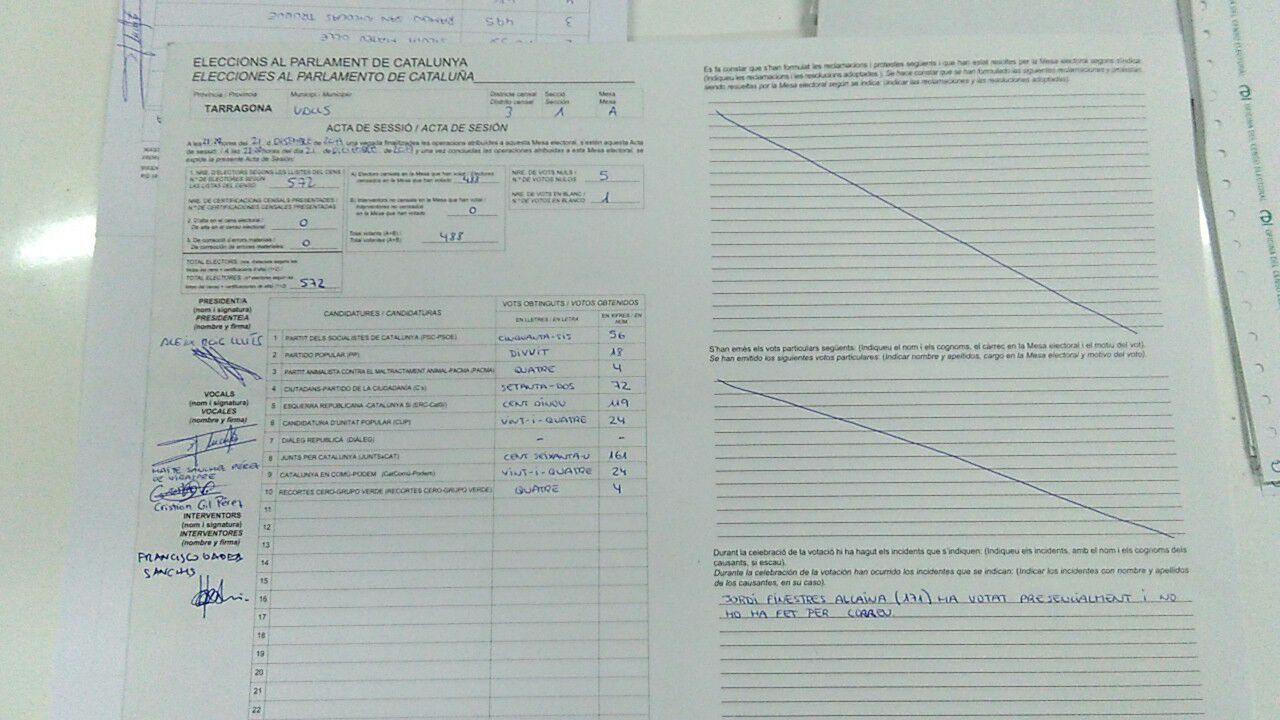 3 RAMON SAN NICOLAS TRUQUE 495
ELECCIONS AL PARLAMENT DE CATALUNYA
ELECCIONES AL PARLAMENTO DE CATALUÑA
Província / Provincia
Municipi / Municipio
Districte censal
Distrito censal
Secció
Sección
Mesa
Mesa
TARRAGONA
VALLS
3
1
A
ACTA DE SESSIÓ / ACTA DE SESIÓN
A les hores del 21 d DESEMBRE de una vegada finalitzades les operacions atribuïdes a aquesta Mesa electoral, s'estén aquesta Acta
de sessió. / A las horas del día 21 de DICIEMBRE de y una vez concluidas las operaciones atribuidas a esta Mesa electoral, se
expide la presente Acta de Sesión:
1. NRE. D'ELECTORS SEGONS LES LLISTES DEL CENS
N.º DE ELECTORES SEGÚN
LAS LISTAS DEL CENSO
572
NRE. DE CERTIFICACIONS CENSALS PRESENTADES /
N.º DE CERTIFICACIONES CENSALES PRESENTADAS
2. D'alta en el cens electoral /
De alta en el censo electoral
0
3. De correcció d'errors materials /
De corrección de errores materiales
0
TOTAL ELECTORS:
TOTAL ELECTORES:
572
A) Electors censats en la Mesa que han votat / Electores
censados en la Mesa que han votado
488
B) Interventors no censats en la Mesa que han votat /
Interventores no censados
en la Mesa que han votado
0
Total votants (A+B) /
Total votantes (A+B)
488
NRE. DE VOTS NULS /
N.º DE VOTOS NULOS
5
NRE. DE VOTS EN BLANC /
N.º DE VOTOS EN BLANCO
1
PRESIDENT/A
(nom i signatura)
PRESIDENTE/A
(nombre y firma)
VOCALS
(nom i signatura)
VOCALES
(nombre y firma)
MAITE SANCHEZ PEREZ
Cristian Gil Pérez
INTERVENTORS
(nom i signatura)
INTERVENTORES
(nombre y firma)
FRANCISCO
SANCHIS
CANDIDATURES / CANDIDATURAS
VOTS OBTINGUTS / VOTOS OBTENIDOS
EN LLETRES / EN LETRA
EN XIFRES / EN NÚM.
1 PARTIT DELS SOCIALISTES DE CATALUNYA (PSC-PSOE) CINQUANTA-SIS 56
2 PARTIDO POPULAR (PP) DIVUIT 18
3 PARTIT ANIMALISTA CONTRA EL MALTRACTAMENT ANIMAL-PACMA (PACMA) QUATRE 4
4 CIUTADANS-PARTIDO DE LA CIUDADANÍA (C's) SETANTA-DOS 72
5 ESQUERRA REPUBLICANA -CATALUNYA SÍ (ERC-CatSí) CENT DINOU 119
6 CANDIDATURA D'UNITAT POPULAR (CUP) VINT-I-QUATRE 24
7 DIÀLEG REPUBLICÀ (DIÀLEG) - -
8 JUNTS PER CATALUNYA (JUNTSxCAT) CENT SEIXANTA-U 161
9 CATALUNYA EN COMÚ-PODEM (CatComú-Podem) VINT-I-QUATRE 24
10 RECORTES CERO-GRUPO VERDE (RECORTES CERO-GRUPO VERDE) QUATRE 4
11
12
13
14
15
16
17
18
19
20
21
22
Es fa constar que s'han formulat les reclamacions i protestes següents i que han estat resoltes per la Mesa electoral segons s'indica:
(Indiqueu les reclamacions i les resolucions adoptades). Se hace constar que se han formulado las siguientes reclamaciones y protestas,
siendo resueltas por la Mesa electoral según se indica: (Indicar las reclamaciones y resoluciones adoptadas).
S'han emès els vots particulars següents: (Indiqueu el nom i els cognoms, el càrrec en la Mesa electoral i el motiu del vot).
Se han emitido los siguientes votos particulares: (Indicar nombre y apellidos, cargo en la Mesa electoral y motivo del voto).
Durant la celebració de la votació hi ha hagut els incidents que s'indiquen: (Indiqueu els incidents, amb el nom i els cognoms dels
causants, si escau).
Durante la celebración de la votación han ocurrido los incidentes que se indican: (Indicar los incidentes con nombre y apellidos
de los causantes, en su caso).
JORDI FINESTRES ALLAINA (171) HA VOTAT PRESENCIALMENT I NO
HO HA FET PER CORREU.